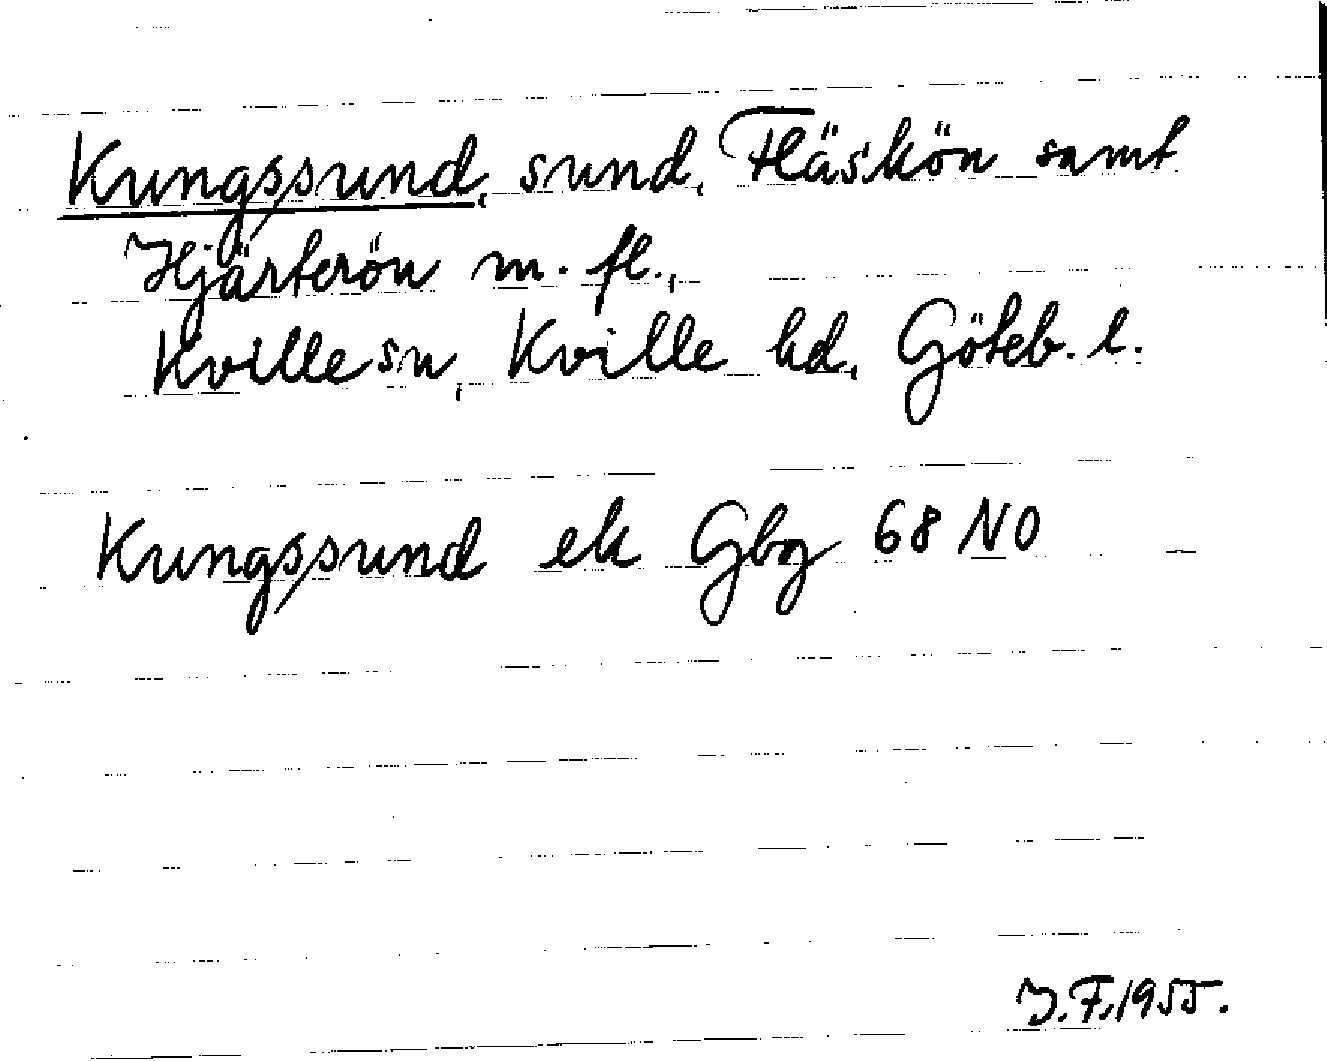 Kungssund, sund, Fläskön samt
Hjärterön m. fl.,
Kville sn, Kville hd, Göteb. l.
Kungssund ek Gbg 68 NO
J.F. 1955.